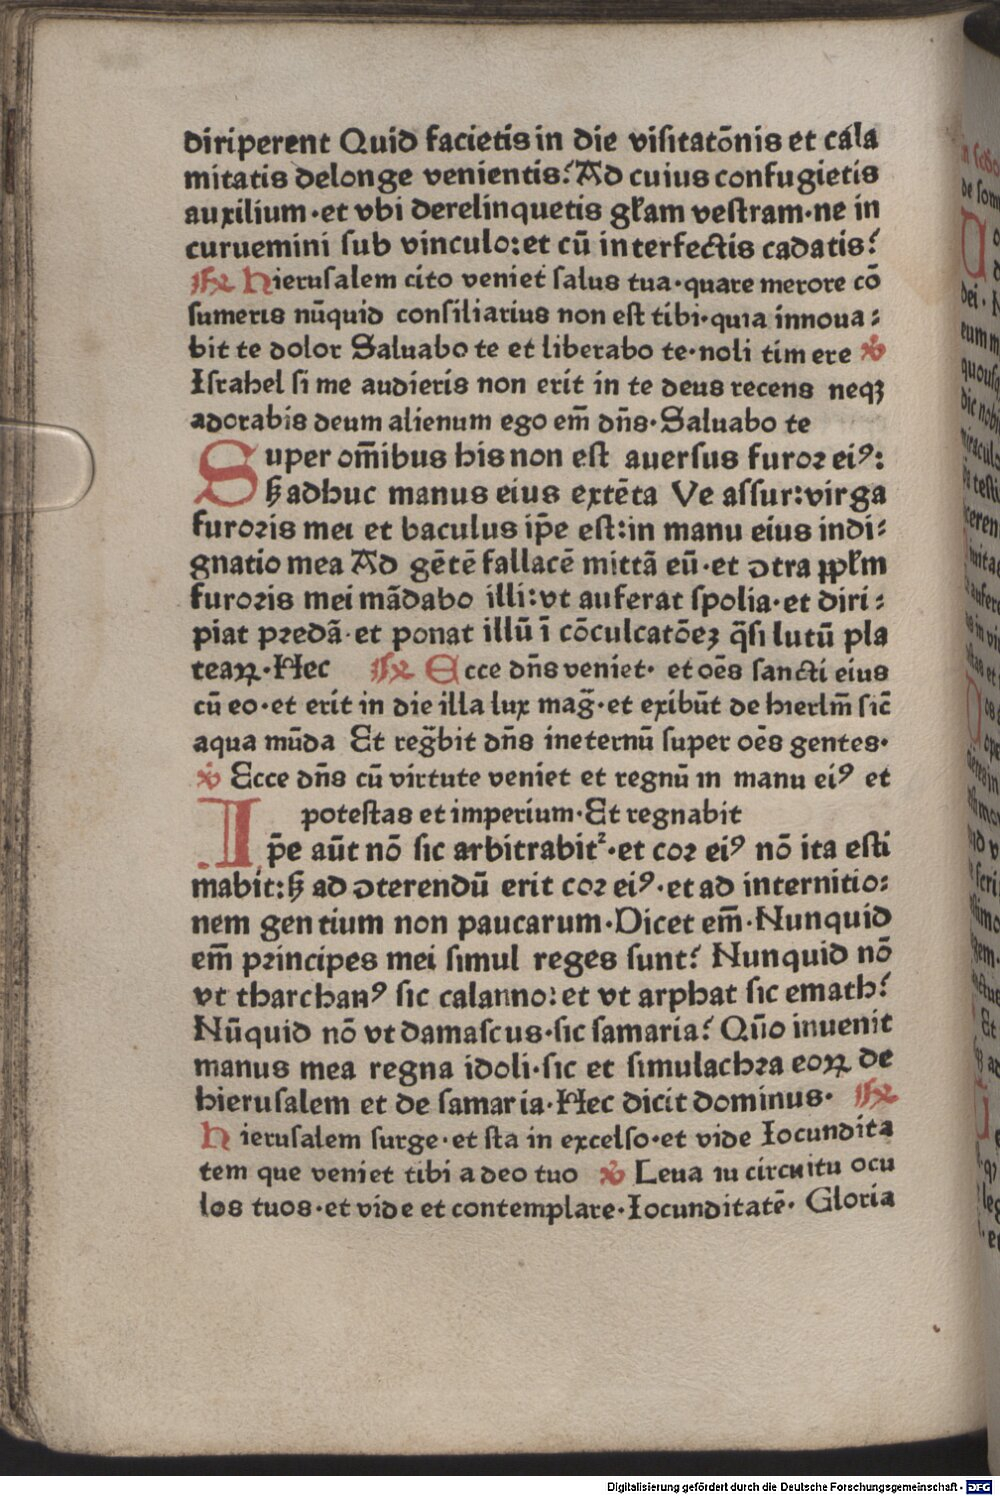 diriperent Quid facietis in die visitatōnis et cala
mitatis delonge venientis? Ad cuius confugietis
auxilium·et vbi derelinquetis gl̄am vestram·ne in
curuemini sub vinculo:et cū interfectis cadatis?
℟ Hierusalem cito veniet salus tua·quare merore cō
sumeris nūquid consiliarius non est tibi·quia innoua:
bit te dolor Saluabo te et liberabo te·noli timere ℣
Israhel si me audieris non erit in te deus recens neqꝫ
adorabis deum alienum ego em̄ dn̄s·Saluabo te
Super om̄ibus his non est auersus furor eiꝰ:
sꝫ adhuc manus eius extēta Ve assur:virga
furoris mei et baculus ip̄e est:in manu eius indi:
gnatio mea Ad gētē fallacē mittā eū·et ↄtra ppl̄m
furoris mei mādabo illi:vt auferat spolia·et diri:
piat predā·et ponat illū ī cōculcatōeꝫ q̄si lutū pla
teaꝝ·Hec ℟ Ecce dn̄s veniet· et oēs sancti eius
cū eo·et erit in die illa lux mag̃·et exibūt de hierlm̄ sic̄
aqua mūda Et reg̃bit dn̄s ineternū super oēs gentes·
℣ Ecce dn̄s cū virtute veniet et regnū in manu eiꝰ et
potestas et imperium·Et regnabit
Ip̄e aūt nō sic arbitrabitᷣ·et cor eiꝰ nō ita esti
mabit:sꝫ ad ↄterendū erit cor eiꝰ·et ad internitio:
nem gentium non paucarum·Dicet em̄·Nunquid
em̄ principes mei simul reges sunt? Nunquid nō
vt tharchanꝰ sic calanno:et vt arphat sic emath?
Nūquid nō vt damascus·sic samaria? Qūo inuenit
manus mea regna idoli·sic et simulachra eoꝝ de
hierusalem et de samaria·Hec dicit dominus· ℟
Hierusalem surge·et sta in excelso·et vide Iocundita
tem que veniet tibi a deo tuo ℣ Leua in circuitu ocu
los tuos·et vide et contemplare·Iocunditatē· Gloria
Digitalisierung gefördert durch die Deutsche Forschungsgemeinschaft - DFG